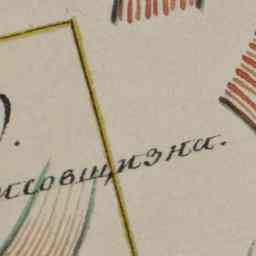 ).
иссовщизна.